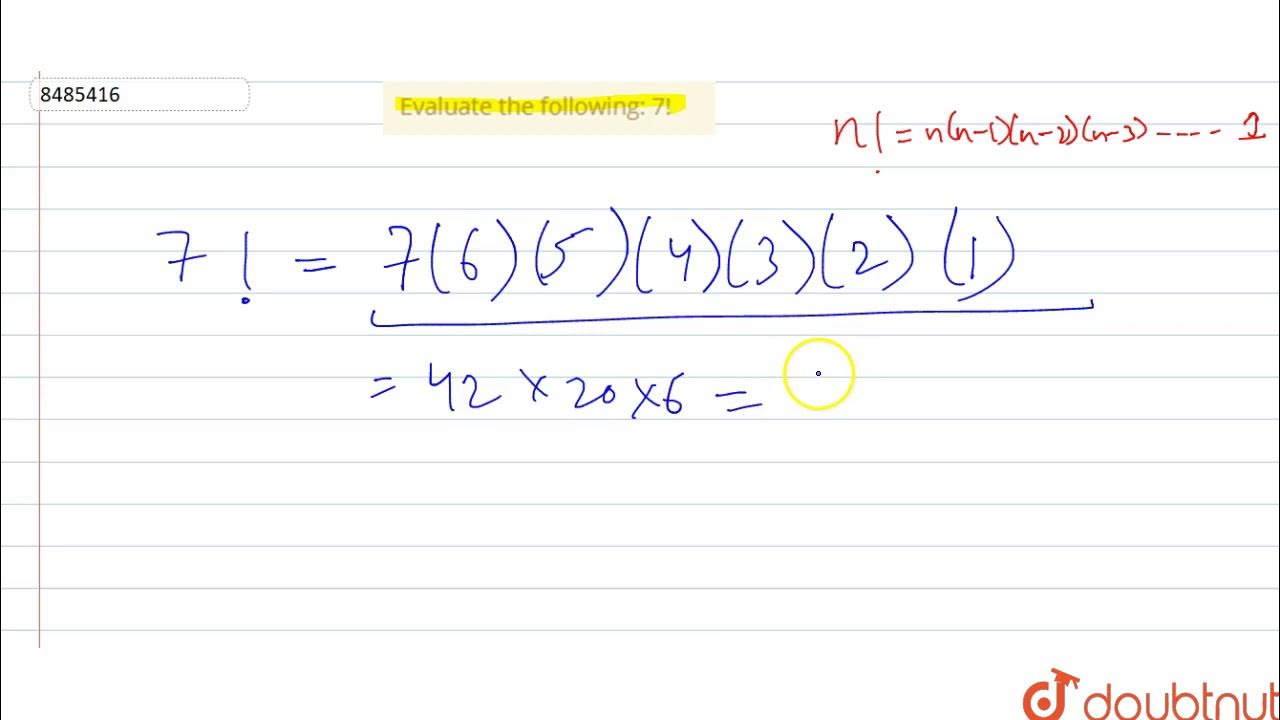 8485416
Evaluate the following: 7!
n! = n(n-1)(n-2)(n-3) ---- 1
7! = 7(6)(5)(4)(3)(2)(1)
= 42 × 20 × 6 =
doubtnut